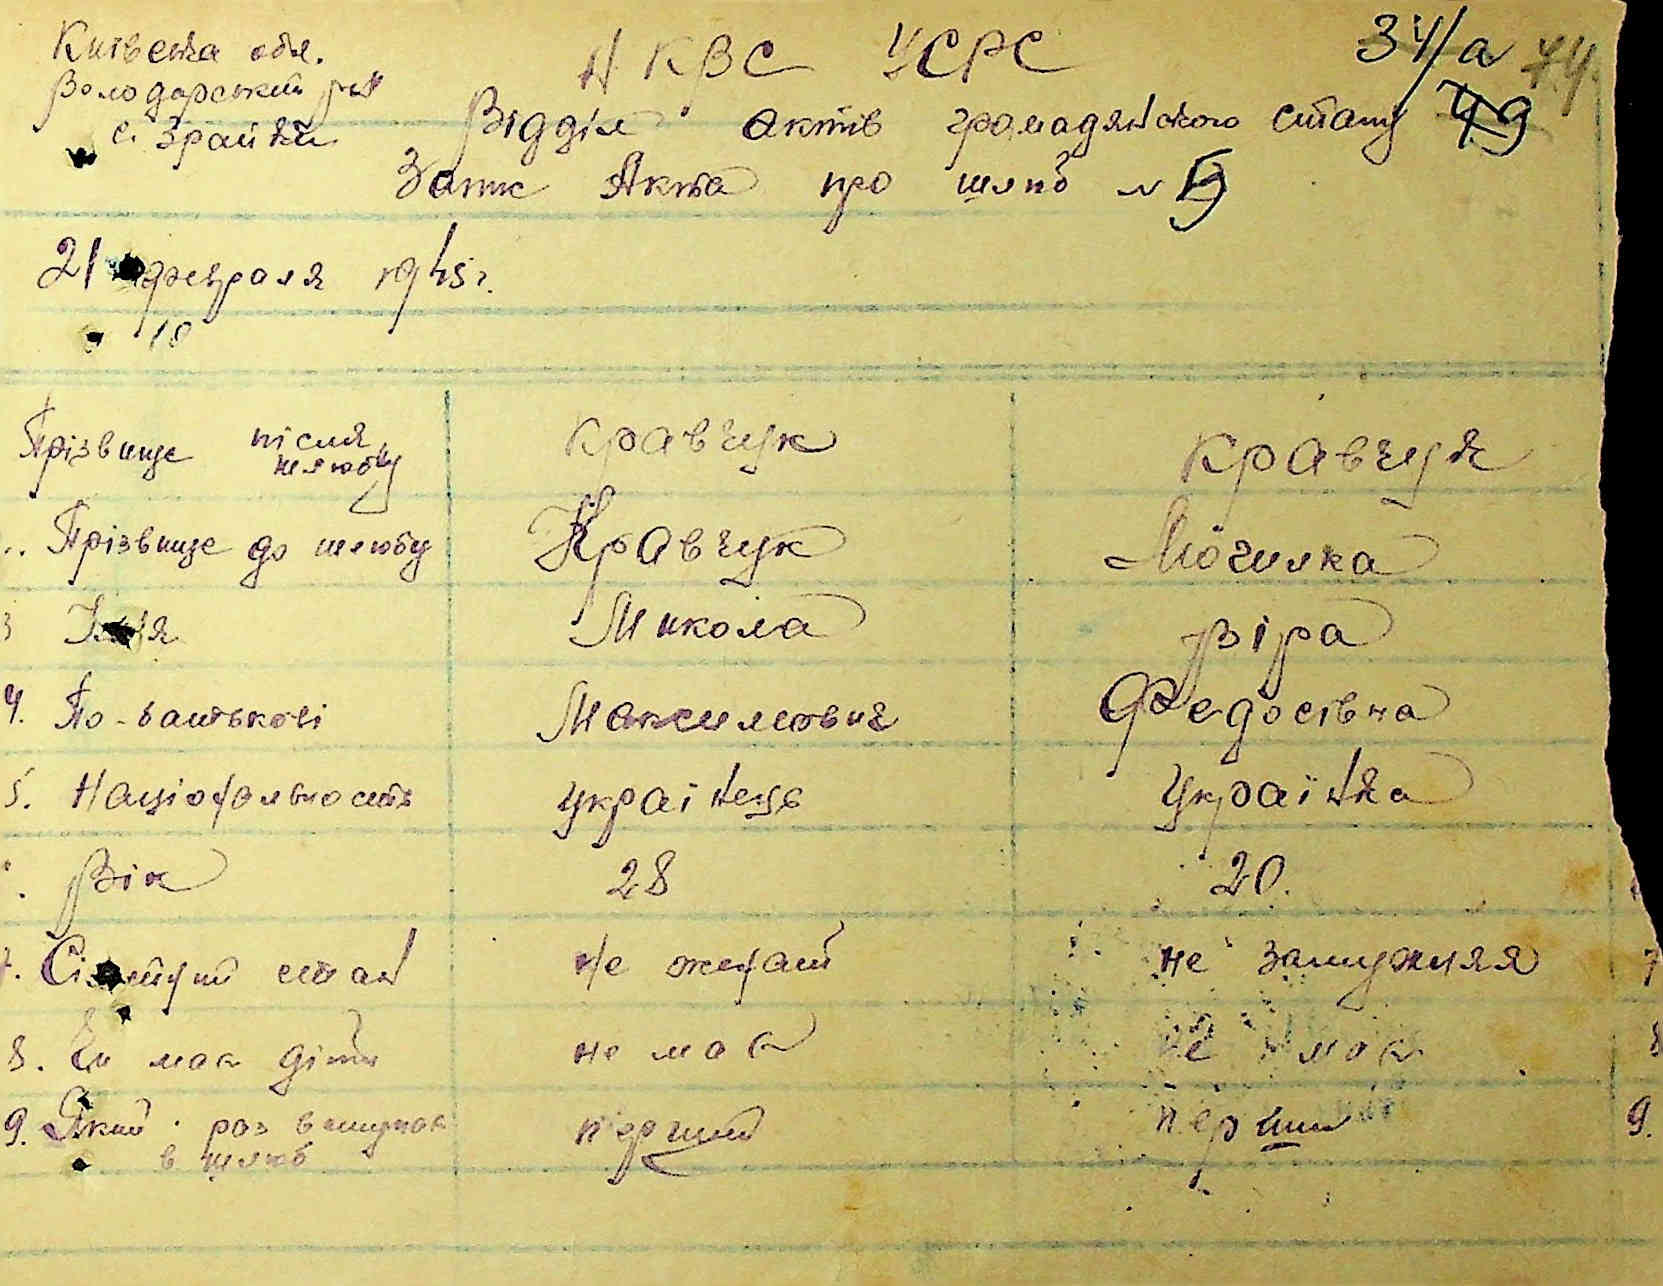 Київська обл. НКВС УСРС 34/а 74
Володарський р-н
с. Зрайки Відділ актів громадянского стану 49
Запис Акта про шлюб N 9
21 февраля 1945 г.
10
Прізвище після шлюбу Кравчук Кравчук
Прізвище до шлюбу Кравчук Могилка
3 Імя Микола Віра
4. По-батькові Максимович Федосівна
5. Національность українець Українка
Вік 28 20.
7. Сімейний стан Не женат не замужняя 7
8. Чи має діти не має не має 8
9. Який раз вступає перший перший 9.
в шлюб